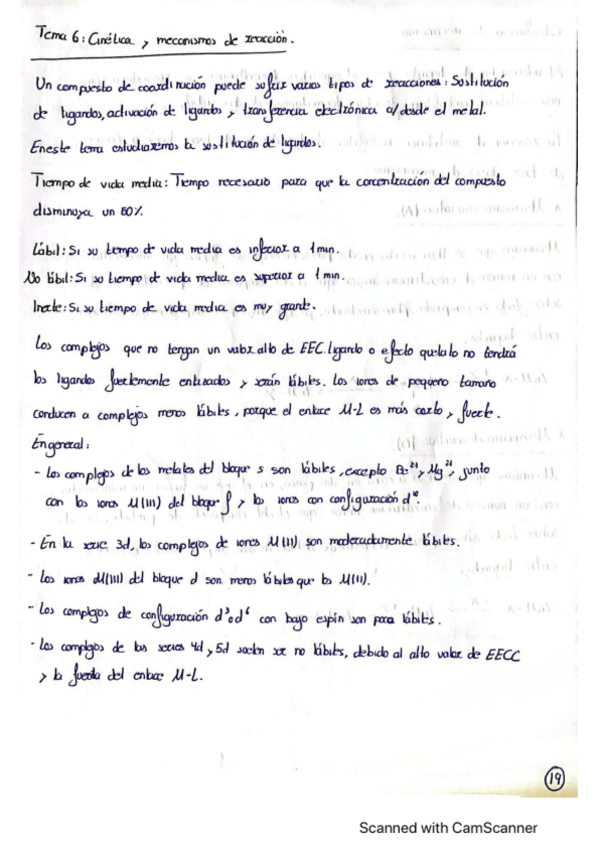 Tema 6: Cinética y mecanismos de reacción.
Un compuesto de coordinación puede sufrir varios tipos de reacciones: Sustitución
de ligandos, activación de ligandos y transferencia electrónica a/desde el metal.
En este tema estudiaremos la sustitución de ligandos.
Tiempo de vida media: Tiempo necesario para que la concentración del compuesto
disminuya un 50%.
Lábil: Si su tiempo de vida media es inferior a 1 min.
No lábil: Si su tiempo de vida media es superior a 1 min.
Inerte: Si su tiempo de vida media es muy grande.
Los complejos que no tengan un valor alto de EEC ligando o efecto quelato no tendrá
los ligandos fuertemente enlazados y serán lábiles. Los iones de pequeño tamaño
conducen a complejos menos lábiles, porque el enlace M-L es más corto y fuerte.
En general:
- Los complejos de los metales del bloque s son lábiles, excepto Be²⁺, Mg²⁺, junto
con los iones M(III) del bloque f y los iones con configuración d¹⁰.
- En la serie 3d, los complejos de iones M(II) son moderadamente lábiles.
- Los iones M(III) del bloque d son menos lábiles que los M(II).
- Los complejos de configuración d³ o d⁶ con bajo espín son poco lábiles.
- Los complejos de las series 4d y 5d suelen ser no lábiles, debido al alto valor de EECC
y la fuerza del enlace M-L.
19
Scanned with CamScanner